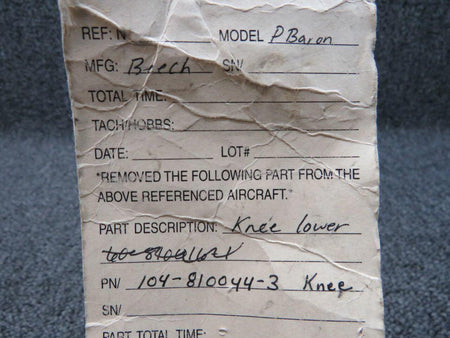 REF: N MODEL P Baron
MFG: Beech SN/
TOTAL TIME:
TACH/HOBBS:
DATE: LOT#
"REMOVED THE FOLLOWING PART FROM THE
ABOVE REFERENCED AIRCRAFT."
PART DESCRIPTION: Knee lower
PN/ 104-810044-3 Knee
SN/
PART TOTAL TIME: